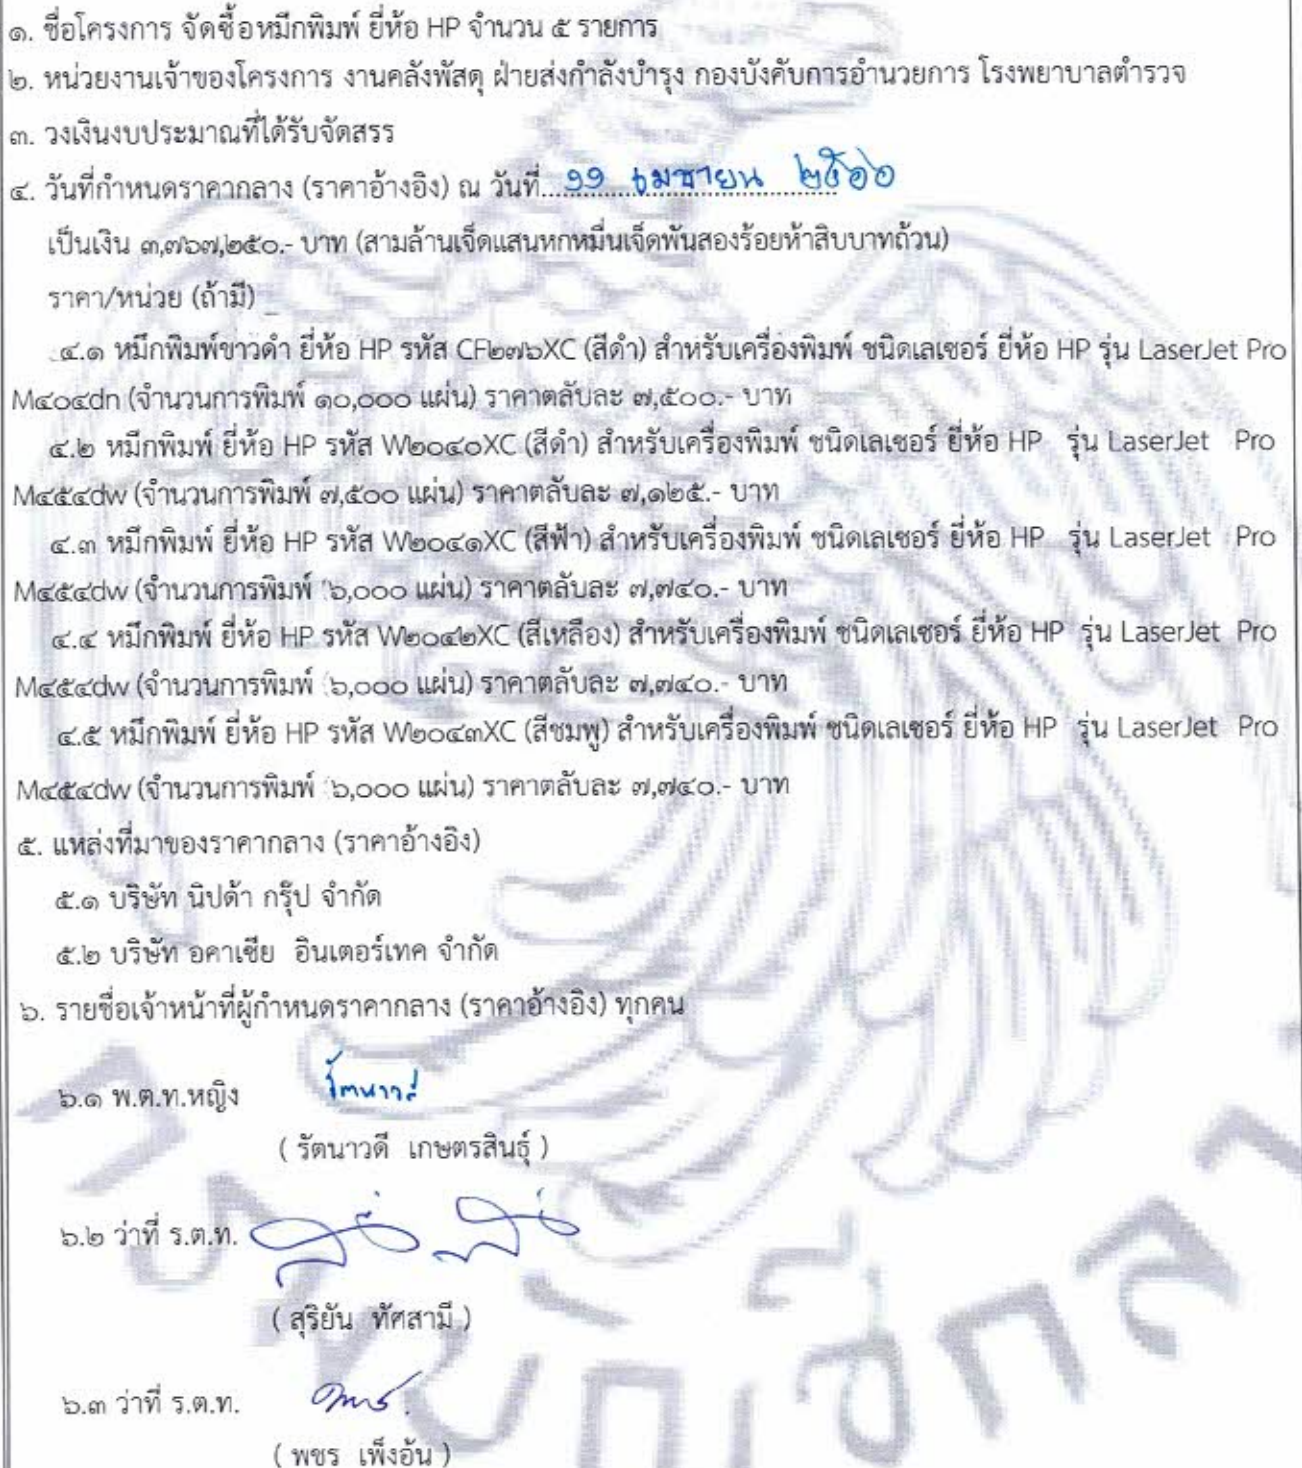 ๑. ชื่อโครงการ จัดซื้อหมึกพิมพ์ ยี่ห้อ HP จำนวน ๕ รายการ
๒. หน่วยงานเจ้าของโครงการ งานคลังพัสดุ ฝ่ายส่งกำลังบำรุง กองบังคับการอำนวยการ โรงพยาบาลตำรวจ
๓. วงเงินงบประมาณที่ได้รับจัดสรร
๔. วันที่กำหนดราคากลาง (ราคาอ้างอิง) ณ วันที่... ๑๑ เมษายน ๒๕๖๖
เป็นเงิน ๓,๗๖๗,๒๕๐.- บาท (สามล้านเจ็ดแสนหกหมื่นเจ็ดพันสองร้อยห้าสิบบาทถ้วน)
ราคา/หน่วย (ถ้ามี)
๔.๑ หมึกพิมพ์ขาวดำ ยี่ห้อ HP รหัส CF๒๗๖XC (สีดำ) สำหรับเครื่องพิมพ์ ชนิดเลเซอร์ ยี่ห้อ HP รุ่น LaserJet Pro
M๔๐๔dn (จำนวนการพิมพ์ ๑๐,๐๐๐ แผ่น) ราคาตลับละ ๗,๕๐๐.- บาท
๔.๒ หมึกพิมพ์ ยี่ห้อ HP รหัส W๒๐๔๐XC (สีดำ) สำหรับเครื่องพิมพ์ ชนิดเลเซอร์ ยี่ห้อ HP รุ่น LaserJet Pro
M๔๕๔dw (จำนวนการพิมพ์ ๗,๕๐๐ แผ่น) ราคาตลับละ ๗,๑๒๕.- บาท
๔.๓ หมึกพิมพ์ ยี่ห้อ HP รหัส W๒๐๔๑XC (สีฟ้า) สำหรับเครื่องพิมพ์ ชนิดเลเซอร์ ยี่ห้อ HP รุ่น LaserJet Pro
M๔๕๔dw (จำนวนการพิมพ์ ๖,๐๐๐ แผ่น) ราคาตลับละ ๗,๗๔๐.- บาท
๔.๔ หมึกพิมพ์ ยี่ห้อ HP รหัส W๒๐๔๒XC (สีเหลือง) สำหรับเครื่องพิมพ์ ชนิดเลเซอร์ ยี่ห้อ HP รุ่น LaserJet Pro
M๔๕๔dw (จำนวนการพิมพ์ ๖,๐๐๐ แผ่น) ราคาตลับละ ๗,๗๔๐.- บาท
๔.๕ หมึกพิมพ์ ยี่ห้อ HP รหัส W๒๐๔๓XC (สีชมพู) สำหรับเครื่องพิมพ์ ชนิดเลเซอร์ ยี่ห้อ HP รุ่น LaserJet Pro
M๔๕๔dw (จำนวนการพิมพ์ ๖,๐๐๐ แผ่น) ราคาตลับละ ๗,๗๔๐.- บาท
๕. แหล่งที่มาของราคากลาง (ราคาอ้างอิง)
๕.๑ บริษัท นิปด้า กรุ๊ป จำกัด
๕.๒ บริษัท อคาเซีย อินเตอร์เทค จำกัด
๖. รายชื่อเจ้าหน้าที่ผู้กำหนดราคากลาง (ราคาอ้างอิง) ทุกคน
๖.๑ พ.ต.ท.หญิง
( รัตนาวดี เกษตรสินธุ์ )
๖.๒ ว่าที่ ร.ต.ท.
( สุริยัน ทัศสามี )
๖.๓ ว่าที่ ร.ต.ท.
( พชร เพ็งอ้น )